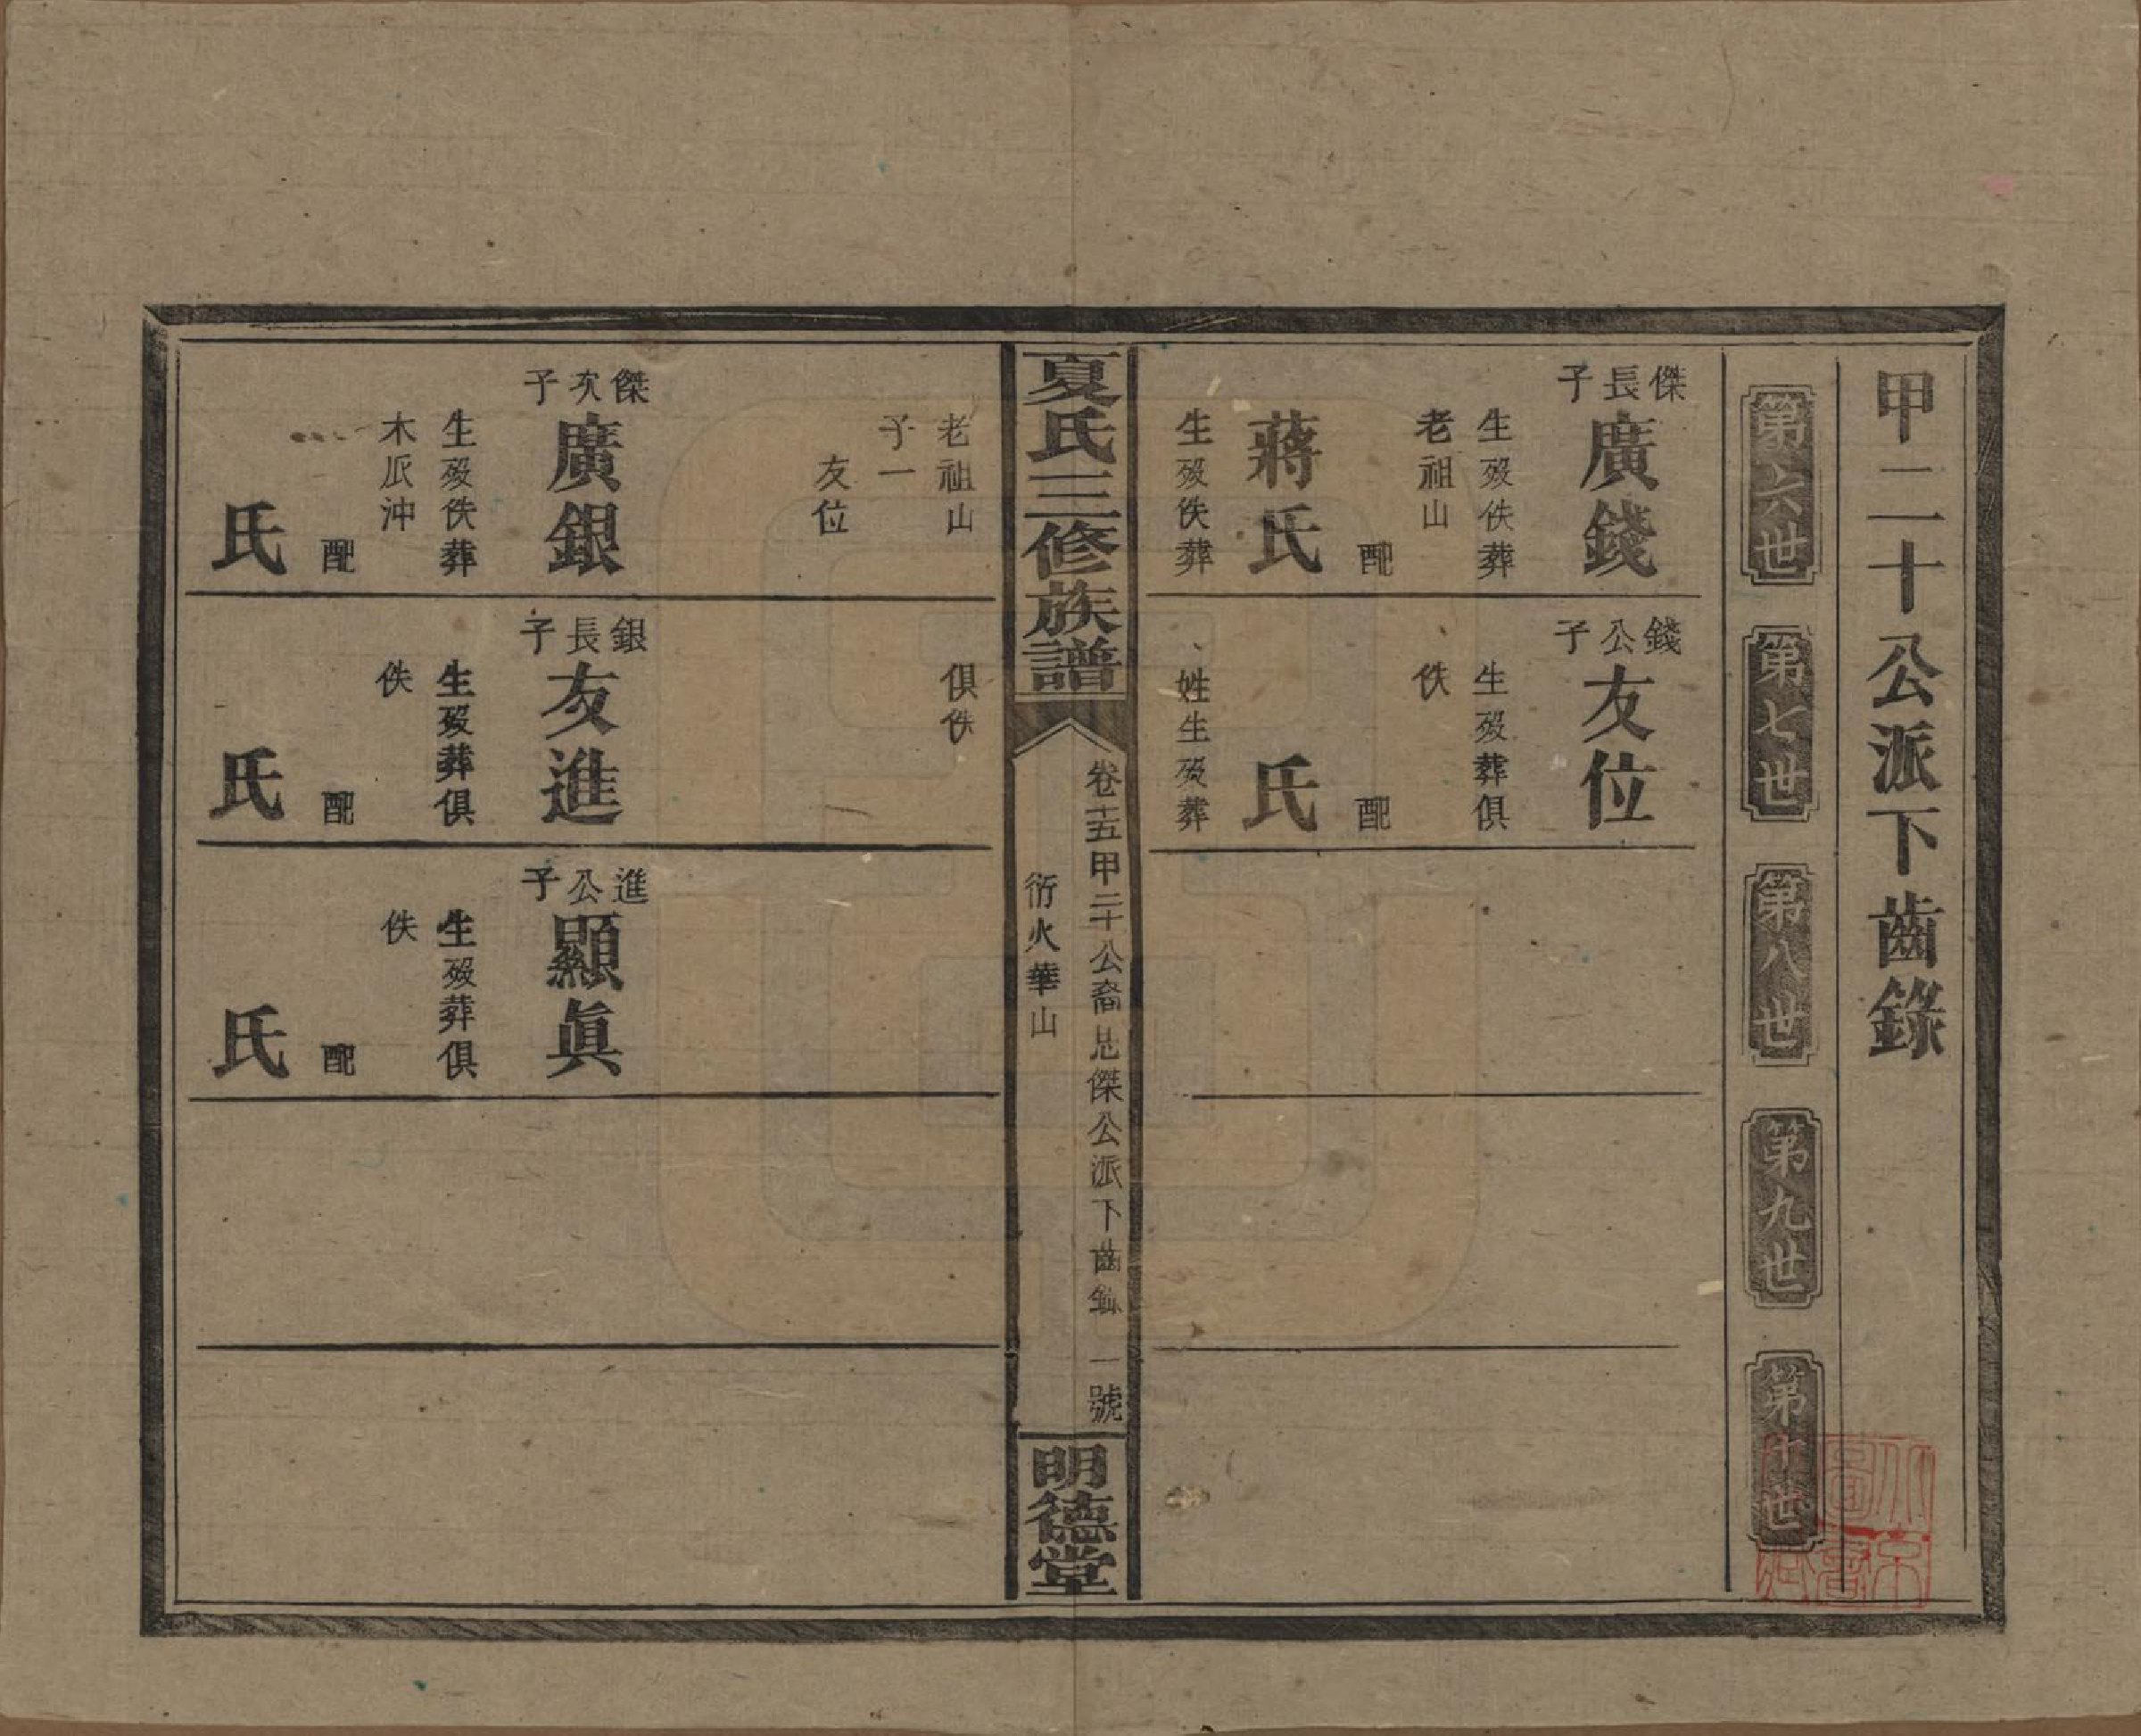 甲二十公派下齒錄
第六世
第七世
第八世
第九世
第十世
傑長子
廣錢
生歿佚葬
老祖山
配
蔣氏
生歿佚葬
錢公子
友位
生歿葬俱
佚
配
氏
姓生歿葬
夏氏三修族譜
卷十五甲二十公裔 傑公派下齒錄
一號
衍火華山
明德堂
老祖山
子一
友位
傑次子
廣銀
生歿佚葬
木瓜沖
配
氏
俱佚
銀長子
友進
生歿葬俱
佚
配
氏
進公子
顯眞
生歿葬俱
佚
配
氏